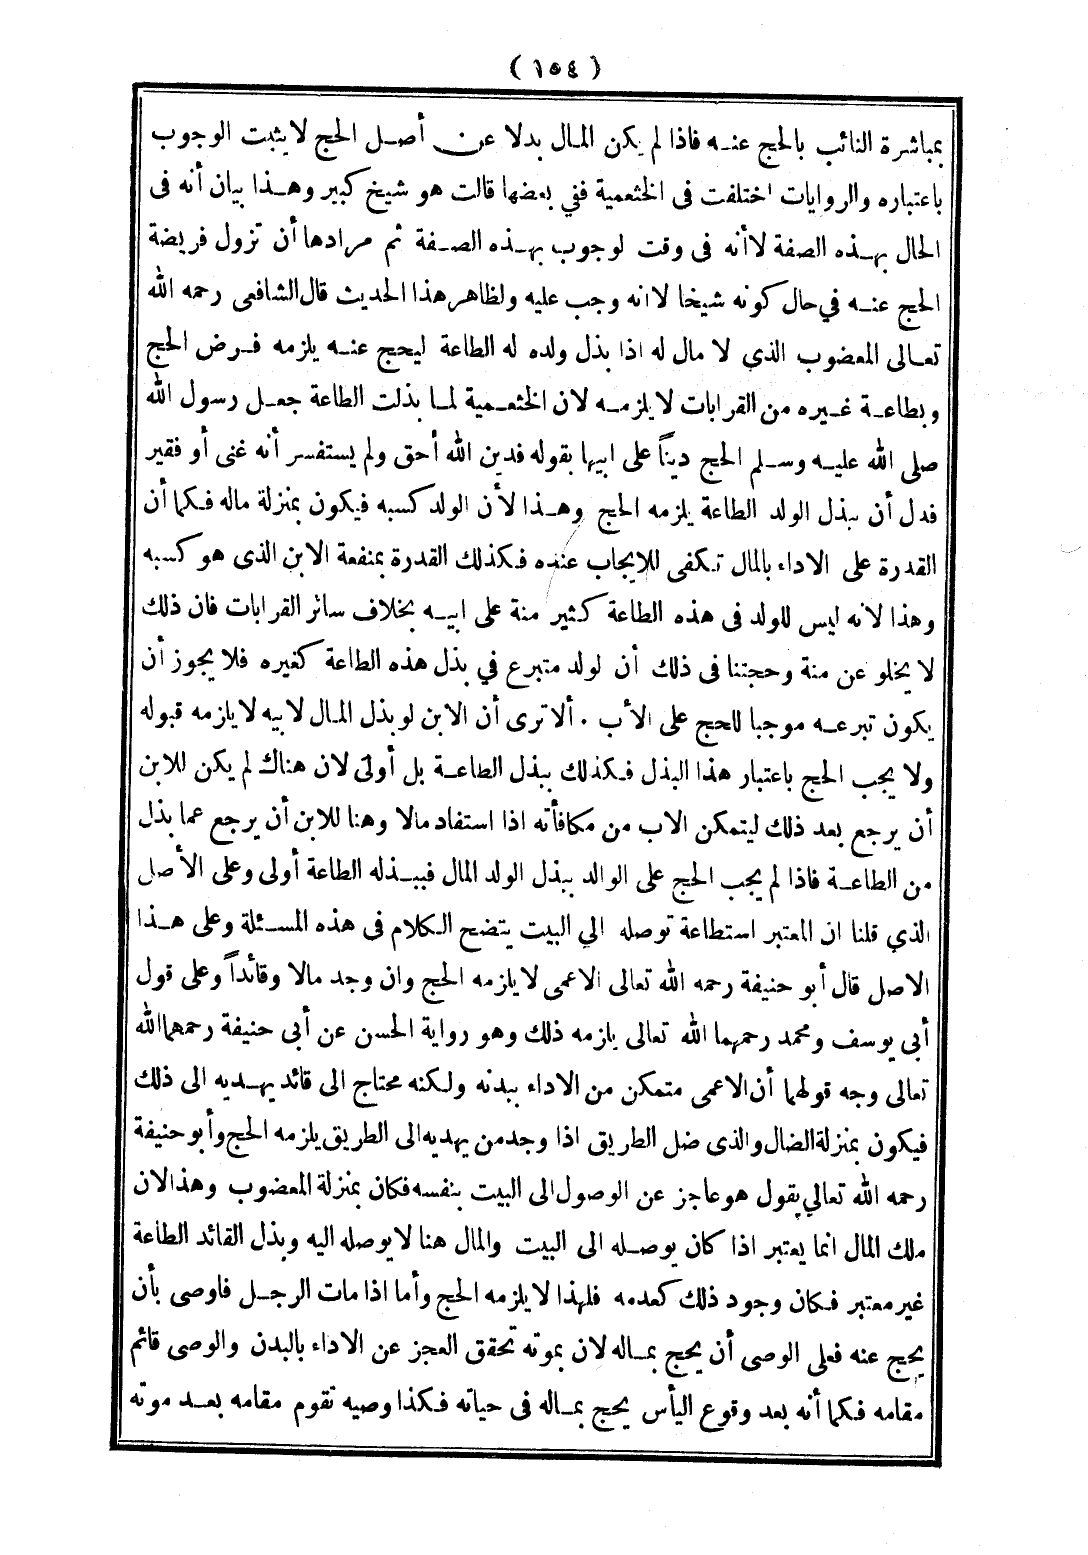 (١٥٤)
بمباشرة النائب بالحج عنه فاذا لم يكن المال بدلا عن أصل الحج لا يثبت الوجوب
باعتباره والروايات اختلفت فى الخثعمية ففي بعضها قالت هو شيخ كبير وهذا بيان أنه فى
الحال بهذه الصفة لاأنه فى وقت لوجوب بهذه الصفة ثم مرادها أن تزول فريضة
الحج عنه في حال كونه شيخا لا انه وجب عليه ولظاهر هذا الحديث قال الشافعى رحمه الله
تعالى المعضوب الذي لا مال له اذا بذل ولده له الطاعة ليحج عنه يلزمه فرض الحج
وبطاعة غيره من القرابات لا يلزمه لان الخثعمية لما بذلت الطاعة جعل رسول الله
صلى الله عليه وسلم الحج ديناً على ابيها بقوله فدين الله أحق ولم يستفسر أنه غنى أو فقير
فدل أن ببذل الولد الطاعة يلزمه الحج وهذا لأن الولد كسبه فيكون بمنزلة ماله فكما أن
القدرة على الاداء بالمال تكفى للايجاب عنده فكذلك القدرة بمنفعة الابن الذى هو كسبه
وهذا لانه ليس للولد فى هذه الطاعة كثير منة على ابيه بخلاف سائر القرابات فان ذلك
لا يخلو عن منة وحجتنا فى ذلك أن لولد متبرع في بذل هذه الطاعة كغيره فلا يجوز أن
يكون تبرعه موجبا للحج على الأب . ألا ترى أن الابن لو بذل المال لابيه لا يلزمه قبوله
ولا يجب الحج باعتبار هذا البذل فكذلك ببذل الطاعة بل أولى لان هناك لم يكن للابن
أن يرجع بعد ذلك ليتمكن الاب من مكافأته اذا استفاد مالا وهنا للابن أن يرجع عما بذل
من الطاعة فاذا لم يجب الحج على الوالد ببذل الولد المال فببذله الطاعة أولى وعلى الأصل
الذي قلنا ان المعتبر استطاعة توصله الي البيت يتضح الكلام فى هذه المسئلة وعلى هذا
الاصل قال أبو حنيفة رحمه الله تعالى الاعمى لا يلزمه الحج وان وجد مالا وقائداً وعلى قول
أبى يوسف ومحمد رحمهما الله تعالى يلزمه ذلك وهو رواية الحسن عن أبى حنيفة رحمهما الله
تعالى وجه قولهما أن الاعمى متمكن من الاداء ببدنه ولكنه محتاج الى قائد يهديه الى ذلك
فيكون بمنزلة الضال والذى ضل الطريق اذا وجد من يهديه الى الطريق يلزمه الحج وأبو حنيفة
رحمه الله تعالي يقول هو عاجز عن الوصول الى البيت بنفسه فكان بمنزلة المعضوب وهذا لان
ملك المال انما يعتبر اذا كان يوصله الى البيت والمال هنا لا يوصله اليه وبذل القائد الطاعة
غير معتبر فكان وجود ذلك كعدمه فلهذا لا يلزمه الحج وأما اذا مات الرجل فاوصى بأن
يحج عنه فعلى الوصى أن يحج بماله لان بموته تحقق العجز عن الاداء بالبدن والوصى قائم
مقامه فكما أنه بعد وقوع اليأس يحج بماله فى حياته فكذا وصيه تقوم مقامه بعد موته